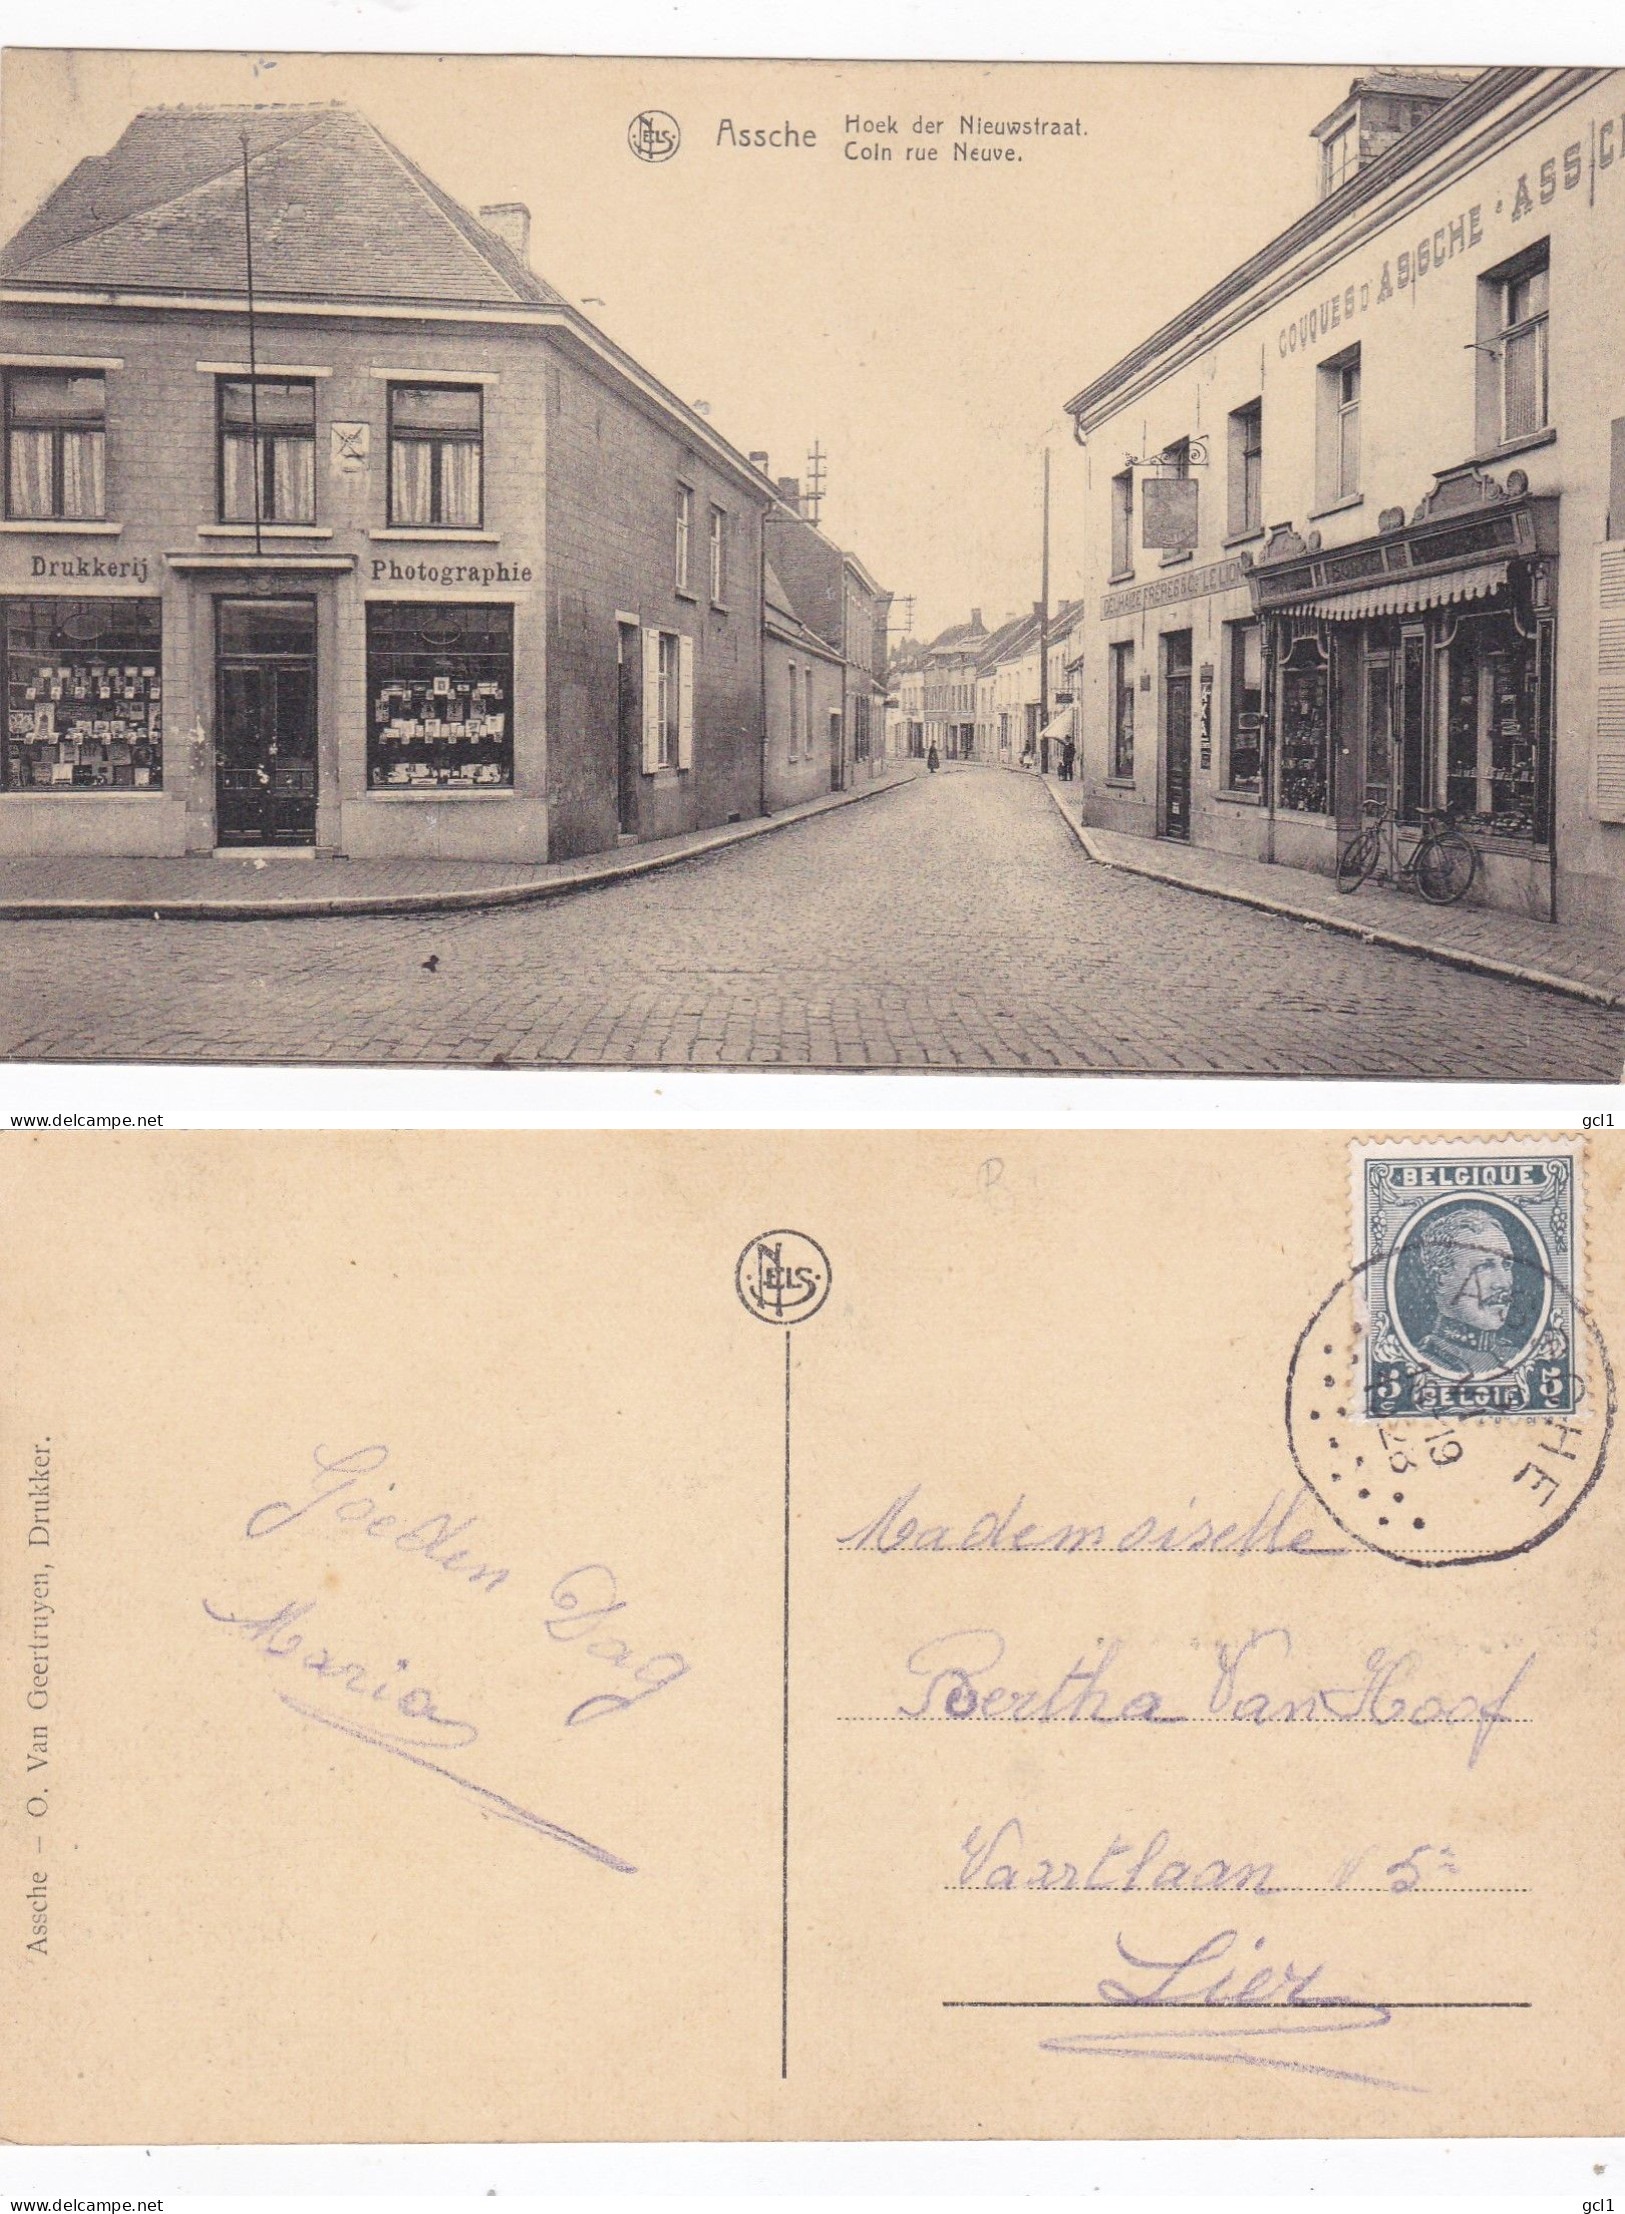 NELS
Assche
Hoek der Nieuwstraat.
Coin rue Neuve.
COUQUES D'ASSCHE - ASSCH
Drukkerij
Photographie
DELHAIZE FRÈRES & Cie LE LION
www.delcampe.net
gcl1
BELGIQUE
NELS
5 5
BELGIE
ASSCHE
19
Goeden Dag
Maria
Mademoiselle
Bertha Van Hoof
Vaartlaan N 5
Lier
Assche — O. Van Geertruyen, Drukker.
www.delcampe.net
gcl1